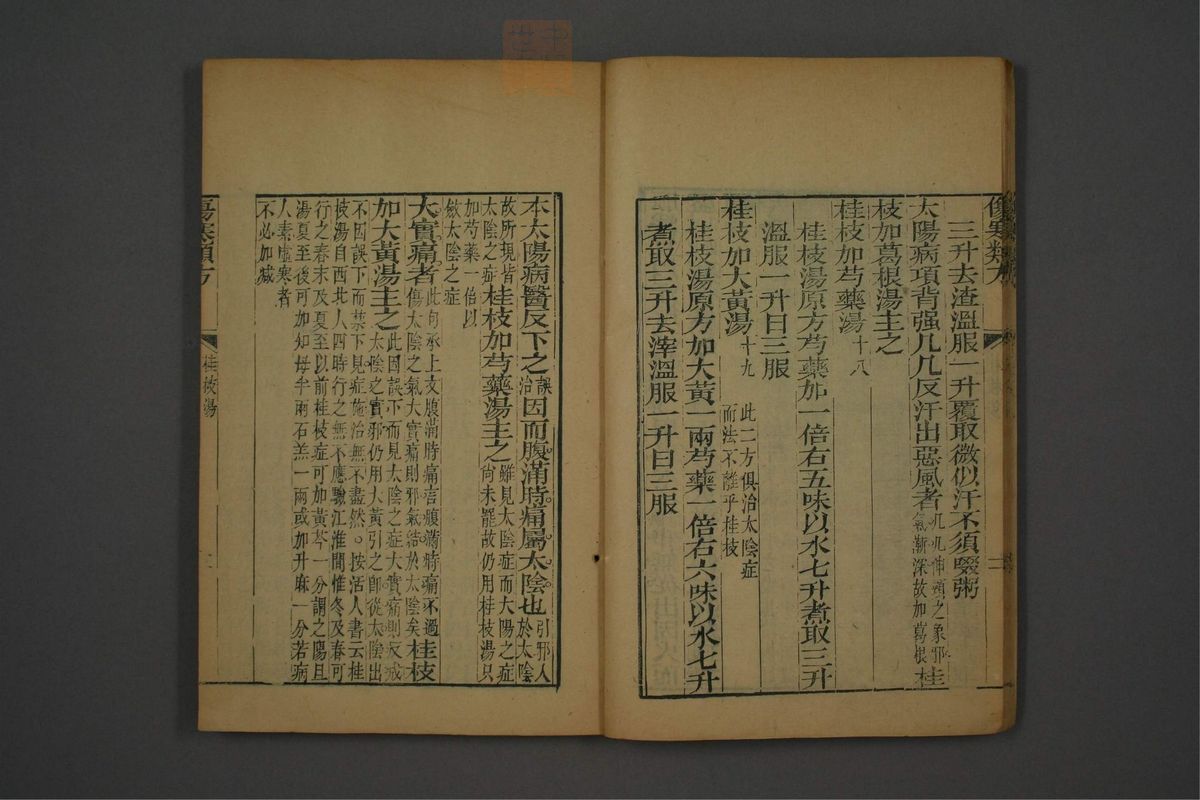 傷寒類方
三升去渣溫服一升覆取微似汗不須啜粥
太陽病項背强几几反汗出惡風者几几伸頸之象邪氣漸深故加葛根桂
枝加葛根湯主之
桂枝加芍藥湯十八
桂枝湯原方芍藥加一倍右五味以水七升煮取三升
溫服一升日三服
桂枝加大黃湯十九此二方俱治太陰症而法不離乎桂枝
桂枝湯原方加大黃一兩芍藥一倍右六味以水七升
煮取三升去滓溫服一升日三服
本太陽病醫反下之誤治因而腹滿時痛屬太陰也引邪入於太陰
故所現皆太陰之症桂枝加芍藥湯主之雖見太陰症而大陽之症尚未罷故仍用桂枝湯只
加芍藥一倍以斂太陰之症
大實痛者此句承上文腹滿時痛言腹滿時痛不過傷太陰之氣大實痛則邪氣結於太陰矣桂枝
加大黃湯主之此因誤下而見太陰之症大實痛則反成太陰之實邪仍用大黃引之即從太陰出
不因誤下而禁下見症施治無不盡然。按活人書云桂
枝湯自西北人四時行之無不應驗江淮間惟冬及春可
行之春末及夏至以前桂枝症可加黃芩一分謂之陽旦
湯夏至後可加知母半兩石羔一兩或加升麻一分若病
人素虛寒者
不必加減
傷寒類方
桂枝湯